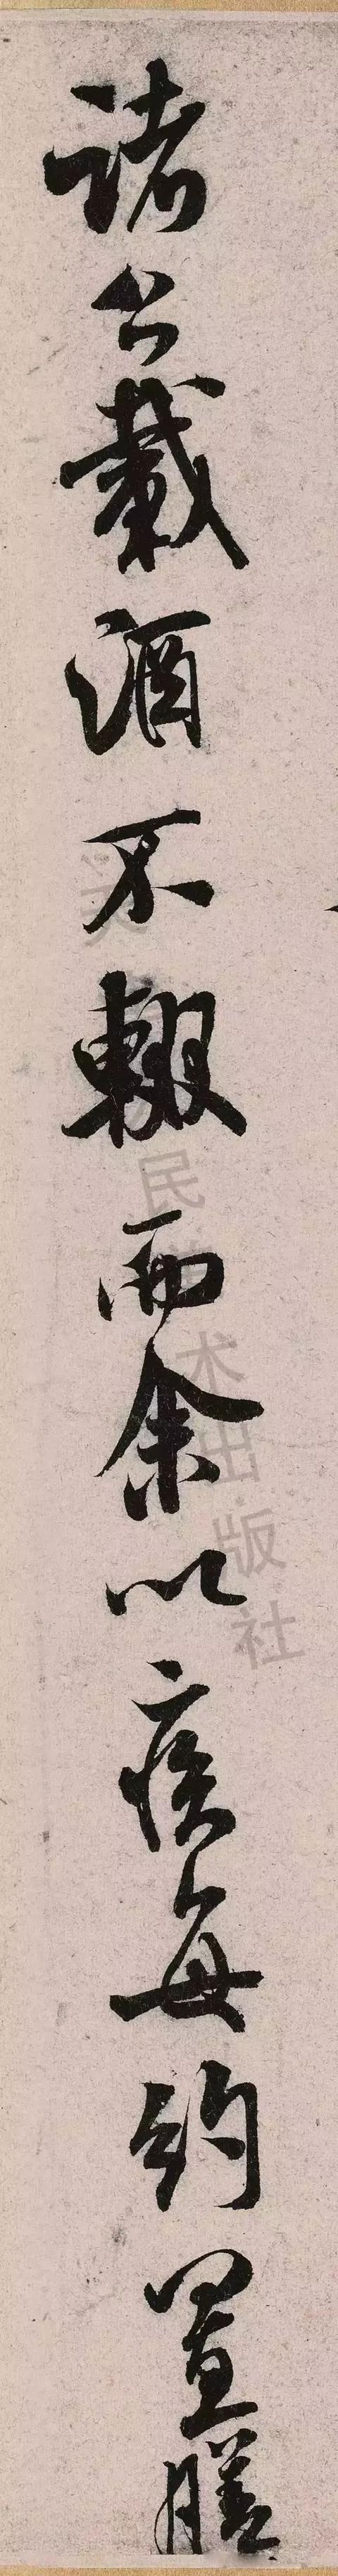 诸公载酒不辍而余以疾每约置膳
民
术出版社